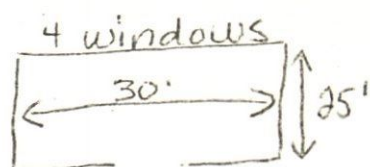 4 windows
30'
25'